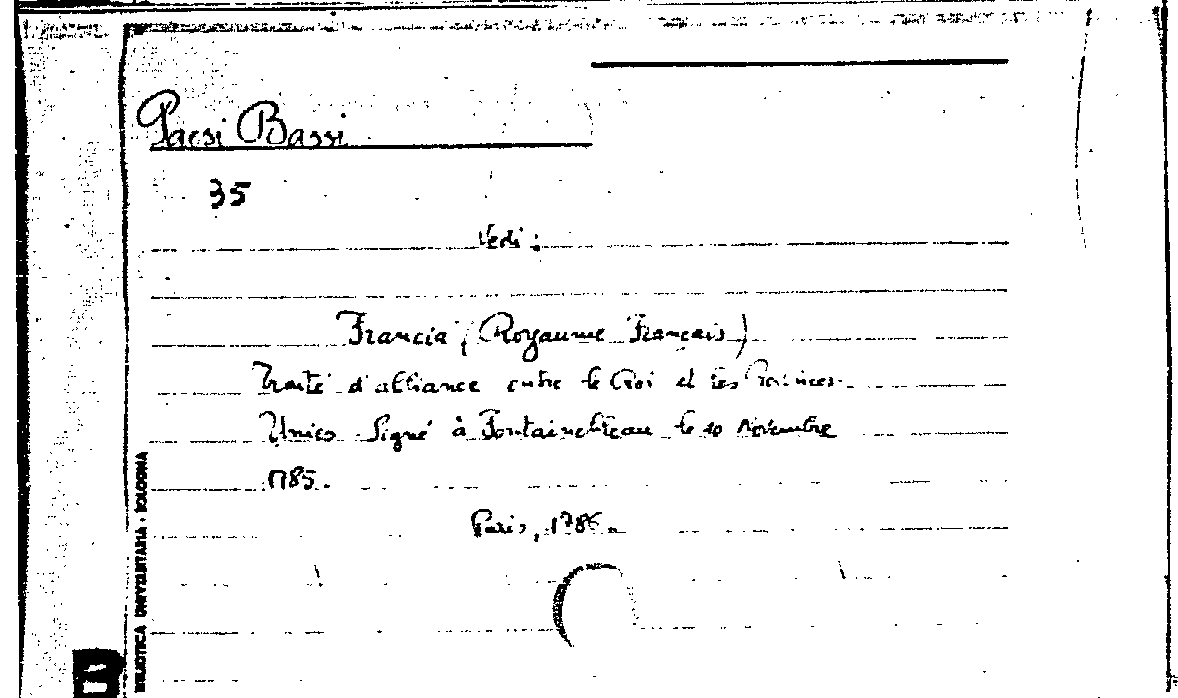 Pacsi Bassi
35
Vedi:
Francia (Royaume Français)
Traité d'alliance entre le Roi et les Provinces
Unies Signé à Fontainebleau le 10 Novembre
1785.
Paris, 1786.
BIBLIOTECA UNIVERSITARIA - BOLOGNA